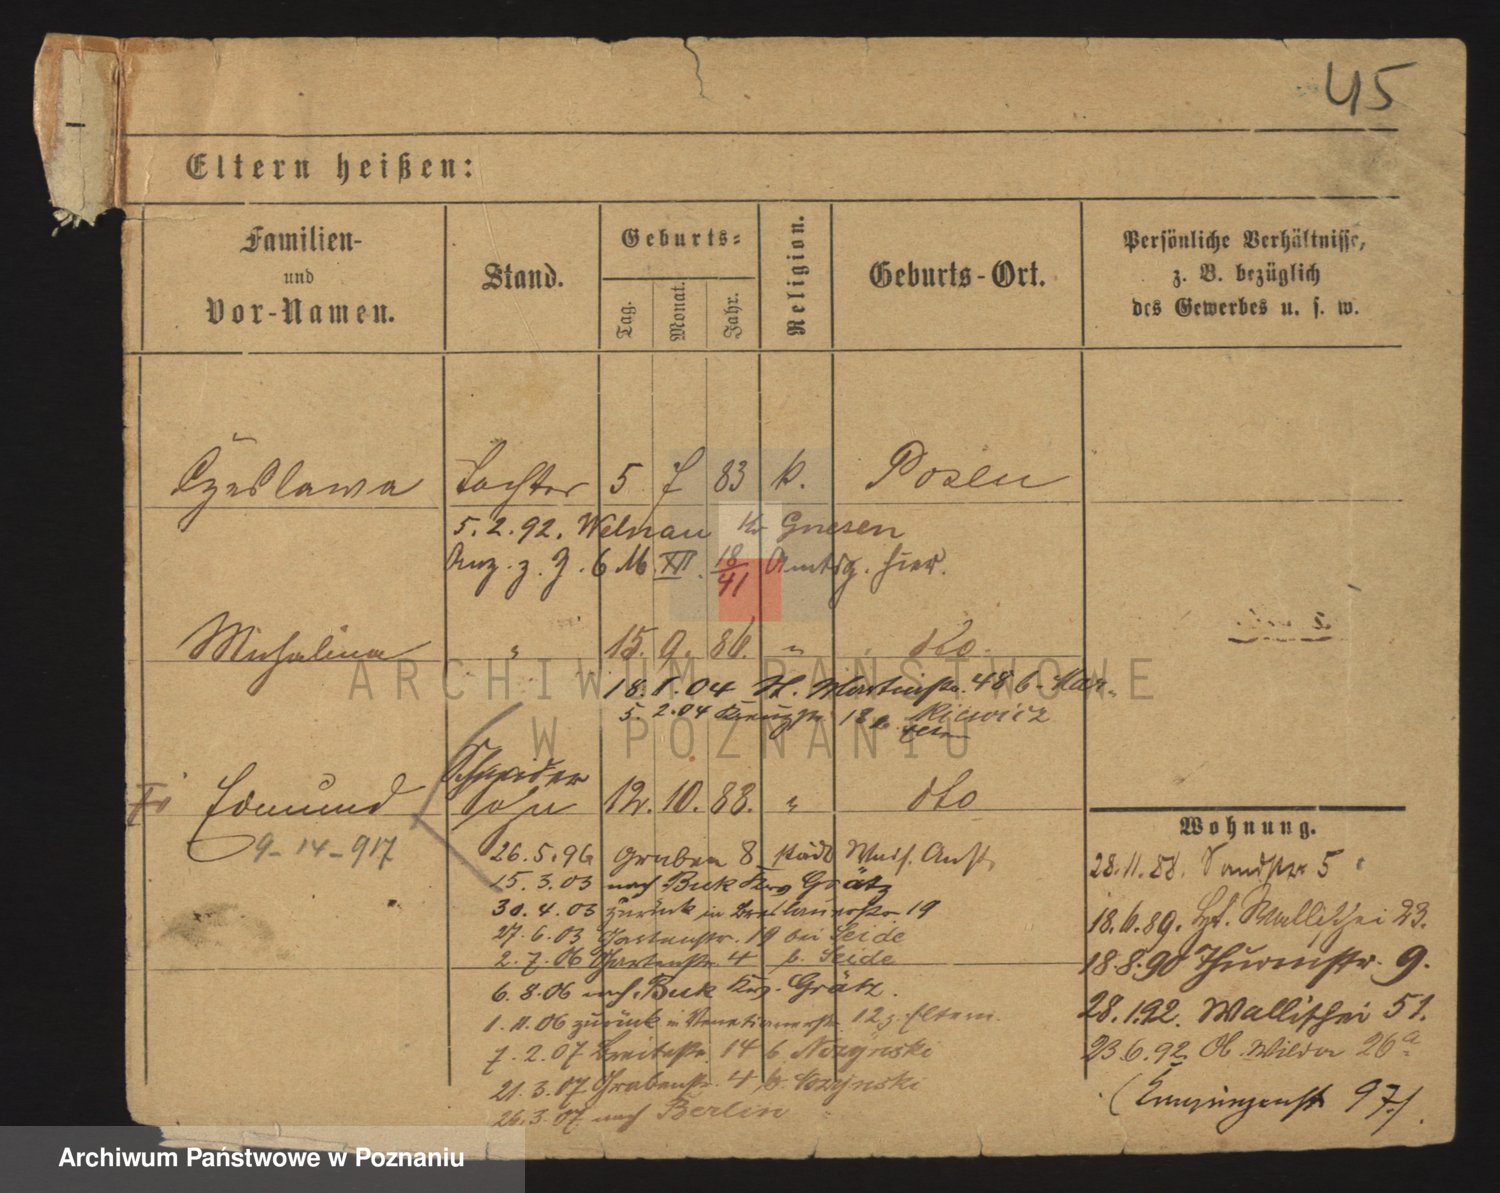 45
Eltern heißen:
Familien-
und
Vor-Namen.
Stand.
Geburts-
Tag.
Monat.
Jahr.
Religion.
Geburts-Ort.
Persönliche Verhältnisse,
z. B. bezüglich
des Gewerbes u. s. w.
Czeslawa Tochter 5 7 83 k. Posen
5.2.92. Welnau Kr Gnesen
Anz. z. J. 6 M XII. 18/41 Amtsg. hier.
Michalina " 15. 9. 86. " dto.
18.1.04 St. Martinstr. 48 b. Mar-
5.2.04 Kreuzstr 18 b. kiewicz
Eltern
Schneider
Edmund Sohn 12. 10. 88. " dto
9-14-917
26.5.96 Graben 8 städt Wais. Anst.
15.3.03 nach Buk Krs Grätz
30.4.03 zurück in Breslauerstr 19
27.6.03 Gartenstr. 19 bei Seide
2.7.06 Gartenstr 4 b. Seide
6.8.06 nach Buk Krs. Grätz.
1.11.06 zurück in Venetianerstr. 12 z. Eltern.
7.2.07 Breitestr. 14 b. Nozynski
21.3.07 Grabenstr. 4 b. Nozynski
26.3.07 nach Berlin
Wohnung.
28.11.88. Sandstr 5
18.6.89. Wallischei 23.
18.8.90 Thurmstr. 9.
28.1.92. Wallischei 51.
23.6.92. Ob. Wilda 26a
97.)
ARCHIWUM PAŃSTWOWE
W POZNANIU
Archiwum Państwowe w Poznaniu